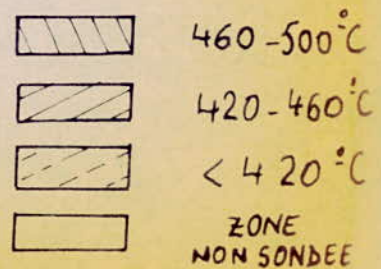 460-500°C
420-460°C
< 420°C
ZONE
NON SONDEE